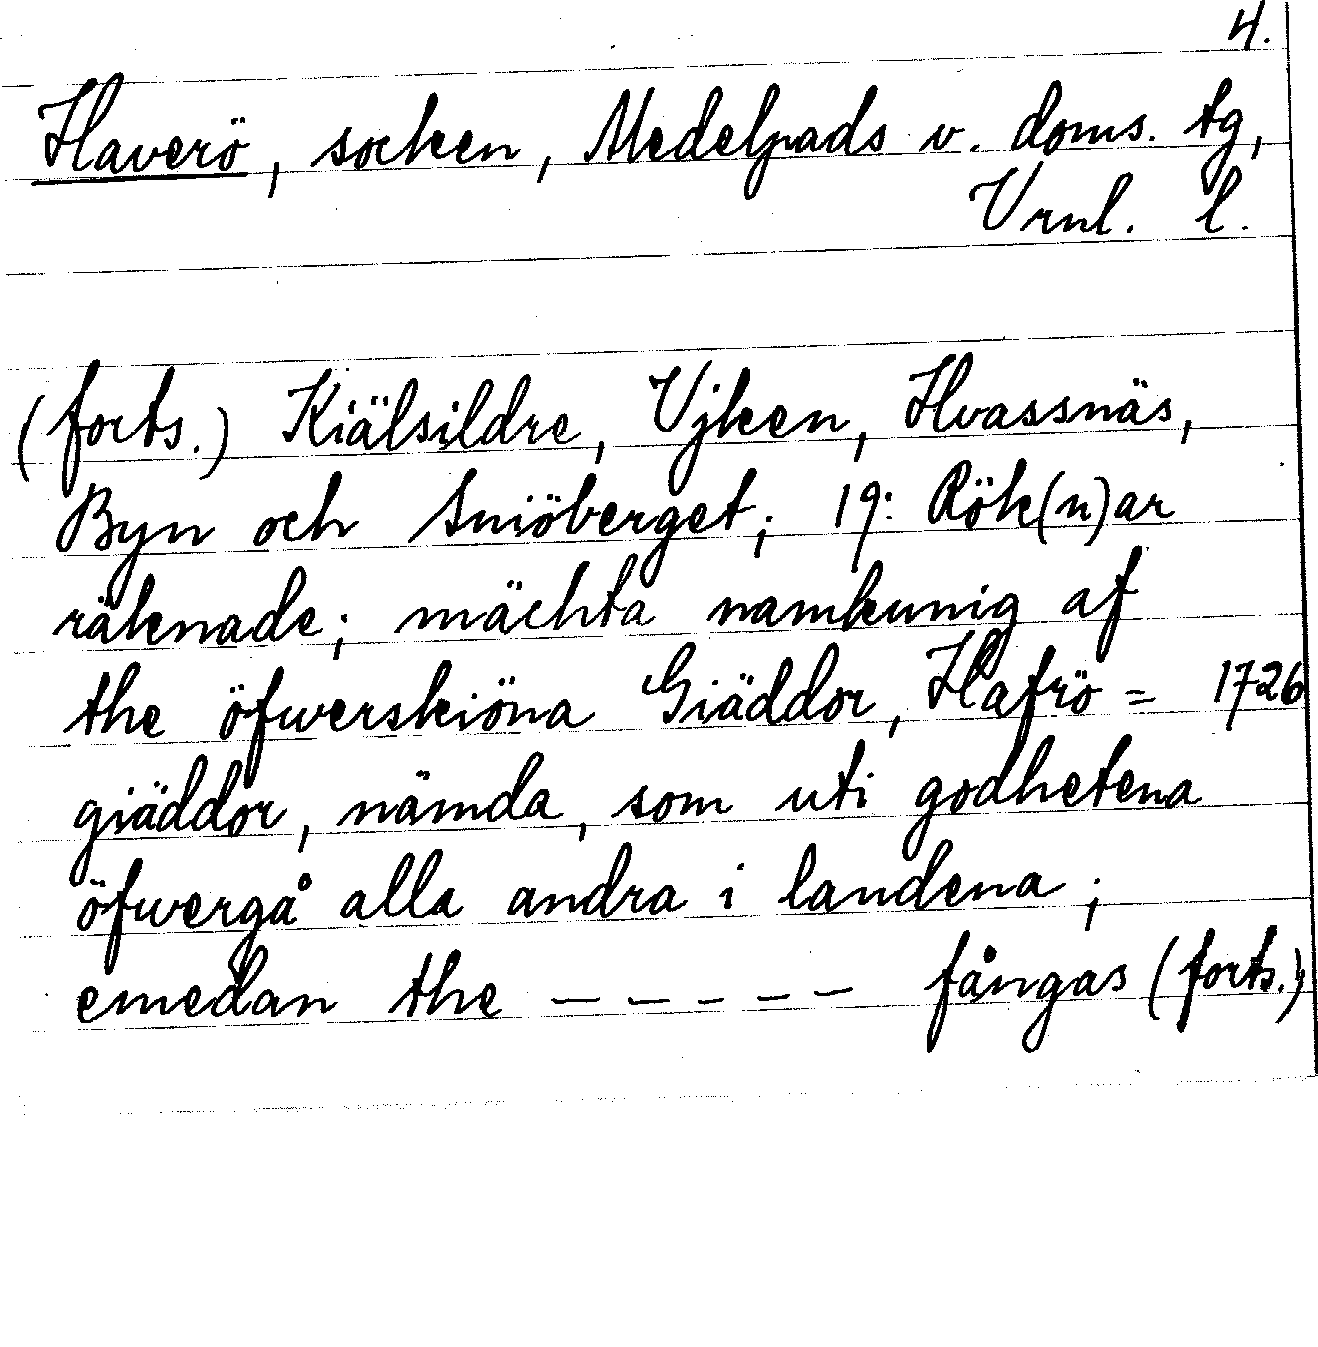 4.
Haverö, socken, Medelpads v. doms. tg,
Vrnl. l.
(forts.) Kiälsildre, Vjken, Hvassnäs,
Byn och Sniöberget; 19: Rök(n)ar
räknade; mächta namkunnig af
the öfwerskiöna Giäddor, Hafrö = 1726
giäddor, nämda, som uti godhetena
öfwergå alla andra i landena;
emedan the – – – – – fångas (forts.)